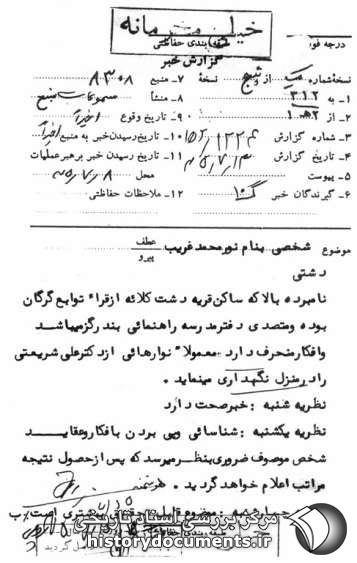 خیلی محرمانه
درجه فور
طبقه بندی حفاظتی
گزارش خبر
نسخه شماره یک از پنج نسخه
۱- به ۳۱۲
۲- از ۲هـ۱
۳- شماره گزارش
۴- تاریخ گزارش
۵- پیوست
۶- گیرندگان خبر
۷- منبع ۸۳۰۸
۸- منشأ مسموعات منبع
۹- تاریخ وقوع اخیراً
۱۰- تاریخ رسیدن خبر به منبع اخیراً
۱۱- تاریخ رسیدن خبر برهبر عملیات
محل
۱۲- ملاحظات حفاظتی
موضوع شخصی بنام نورمحمد غریب
عطف
پیرو
دشتی
نامبرده بالا که ساکن قریه دشت کلاته ازقراء توابع گرگان
بوده و متصدی دفترمدرسه راهنمائی بندرگز میباشد
وافکار منحرف دارد معمولا" نوارهائی ازدکترعلی شریعتی
را در منزل نگهداری مینماید .
نظریه شنبه : خبرصحت دارد
نظریه یکشنبه : شناسائی وپی بردن بافکار و عقاید
شخص موصوف ضروری بنظر میرسد که پس از حصول نتیجه
مراتب اعلام خواهد گردید .
مرکز بررسی اسناد تاریخی
historydocuments.ir